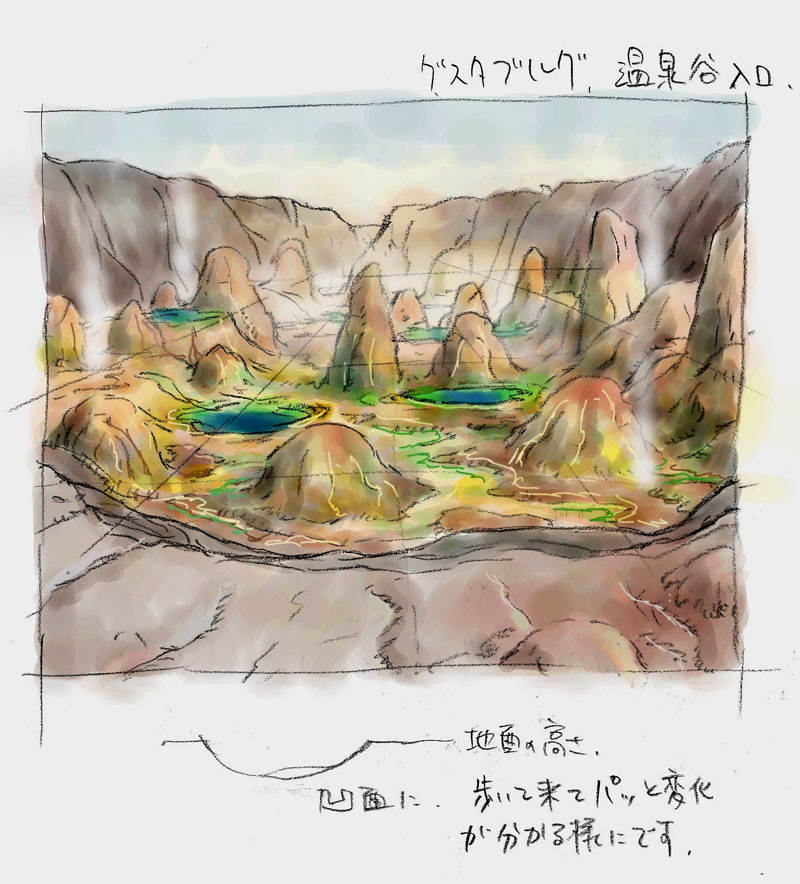 ゲスタブルグ、温泉谷入口、
地面の高さ、
凹面に、歩いて来てパッと変化
が分かる様にです。